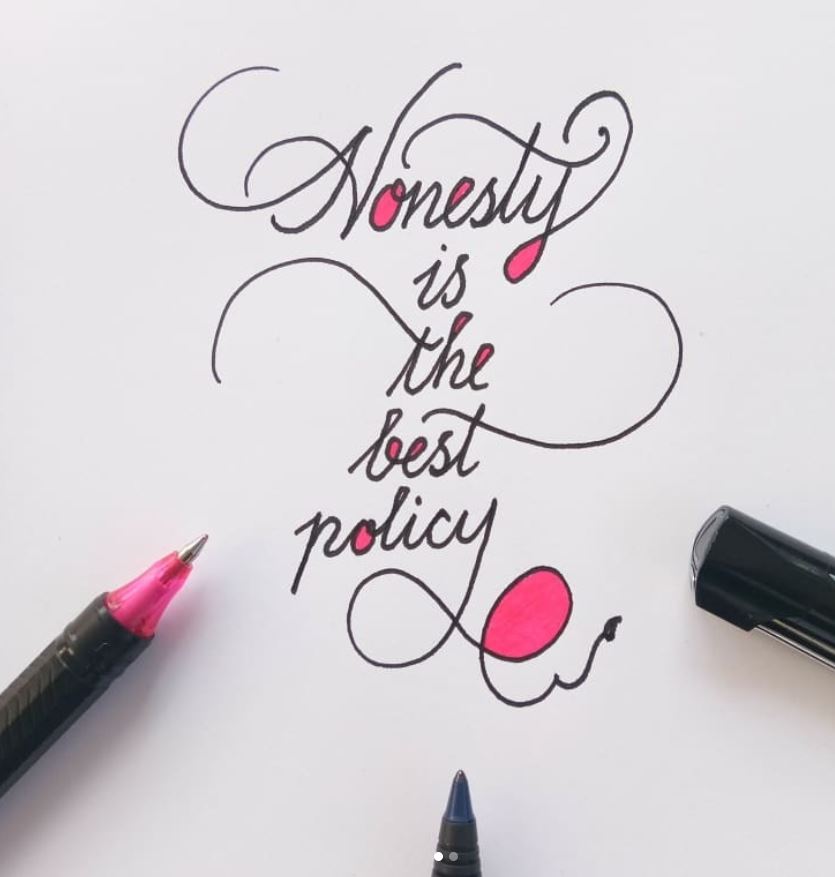 Honesty
is
the
best
policy